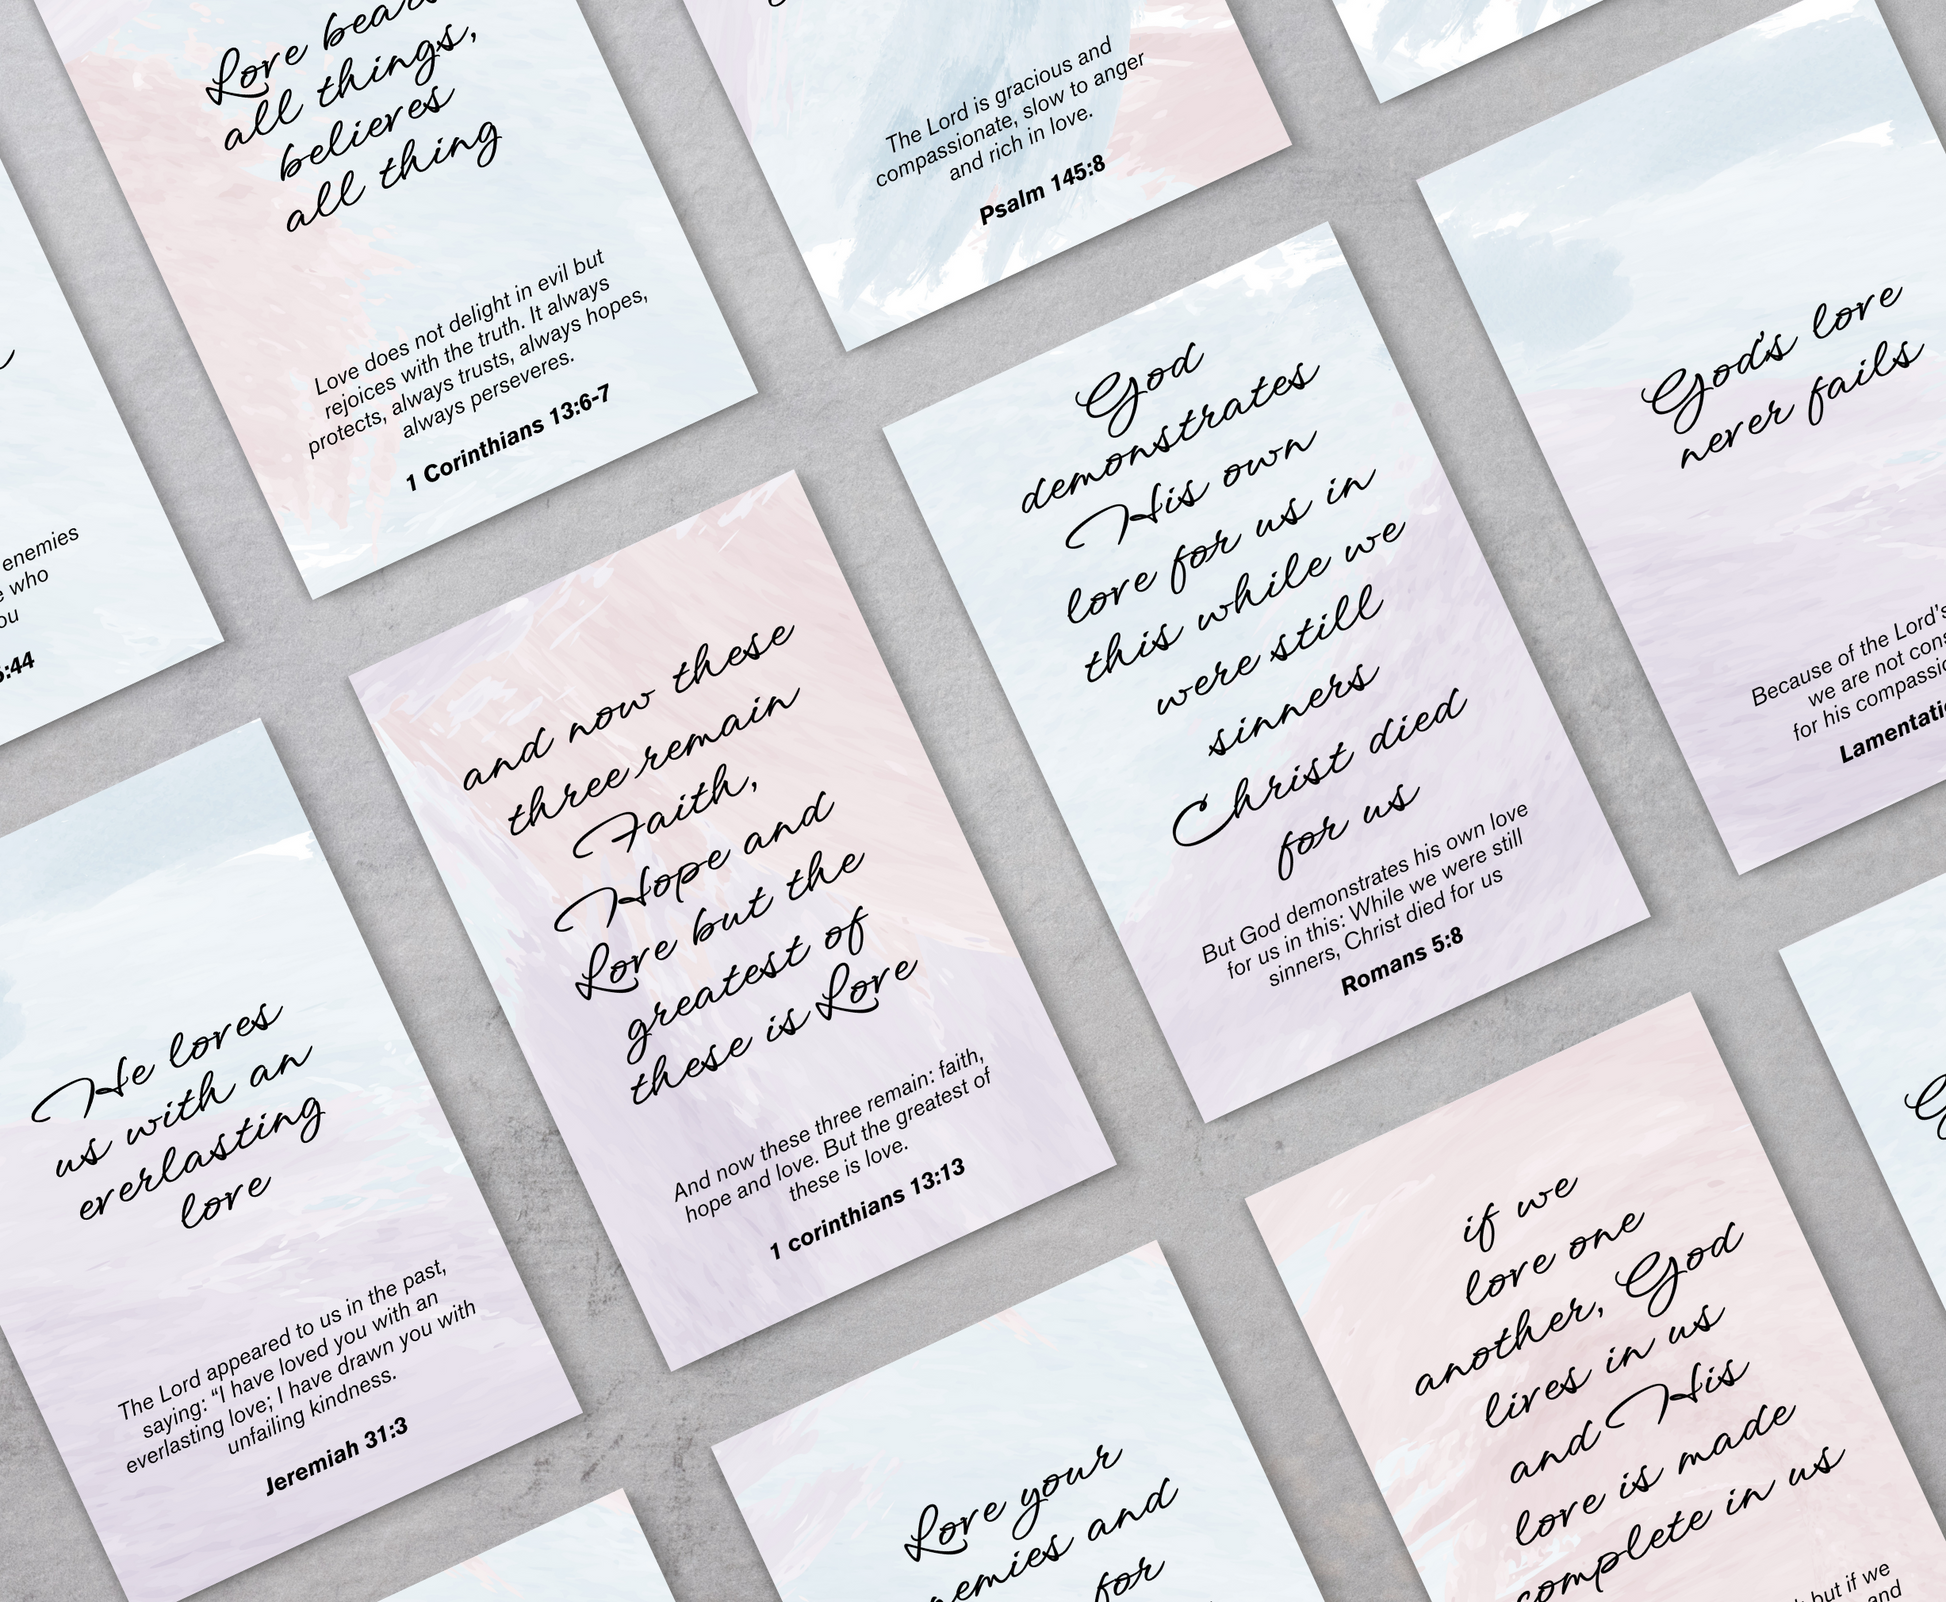 Love bears
all things,
believes
all thing
Love does not delight in evil but
rejoices with the truth. It always
protects, always trusts, always hopes,
always perseveres.
1 Corinthians 13:6-7
The Lord is gracious and
compassionate, slow to anger
and rich in love.
Psalm 145:8
enemies
who
:44
God
demonstrates
His own
love for us in
this while we
were still
sinners
Christ died
for us
But God demonstrates his own love
for us in this: While we were still
sinners, Christ died for us
Romans 5:8
God's love
never fails
Because of the Lord's
we are not
for his
and now these
three remain
Faith,
Hope and
Love but the
greatest of
these is Love
And now these three remain: faith,
hope and love. But the greatest of
these is love.
1 corinthians 13:13
He loves
us with an
everlasting
love
The Lord appeared to us in the past,
saying: “I have loved you with an
everlasting love; I have drawn you with
unfailing kindness.
Jeremiah 31:3
if we
love one
another, God
lives in us
and His
love is made
complete in us
but if we
and
Love your
and
for